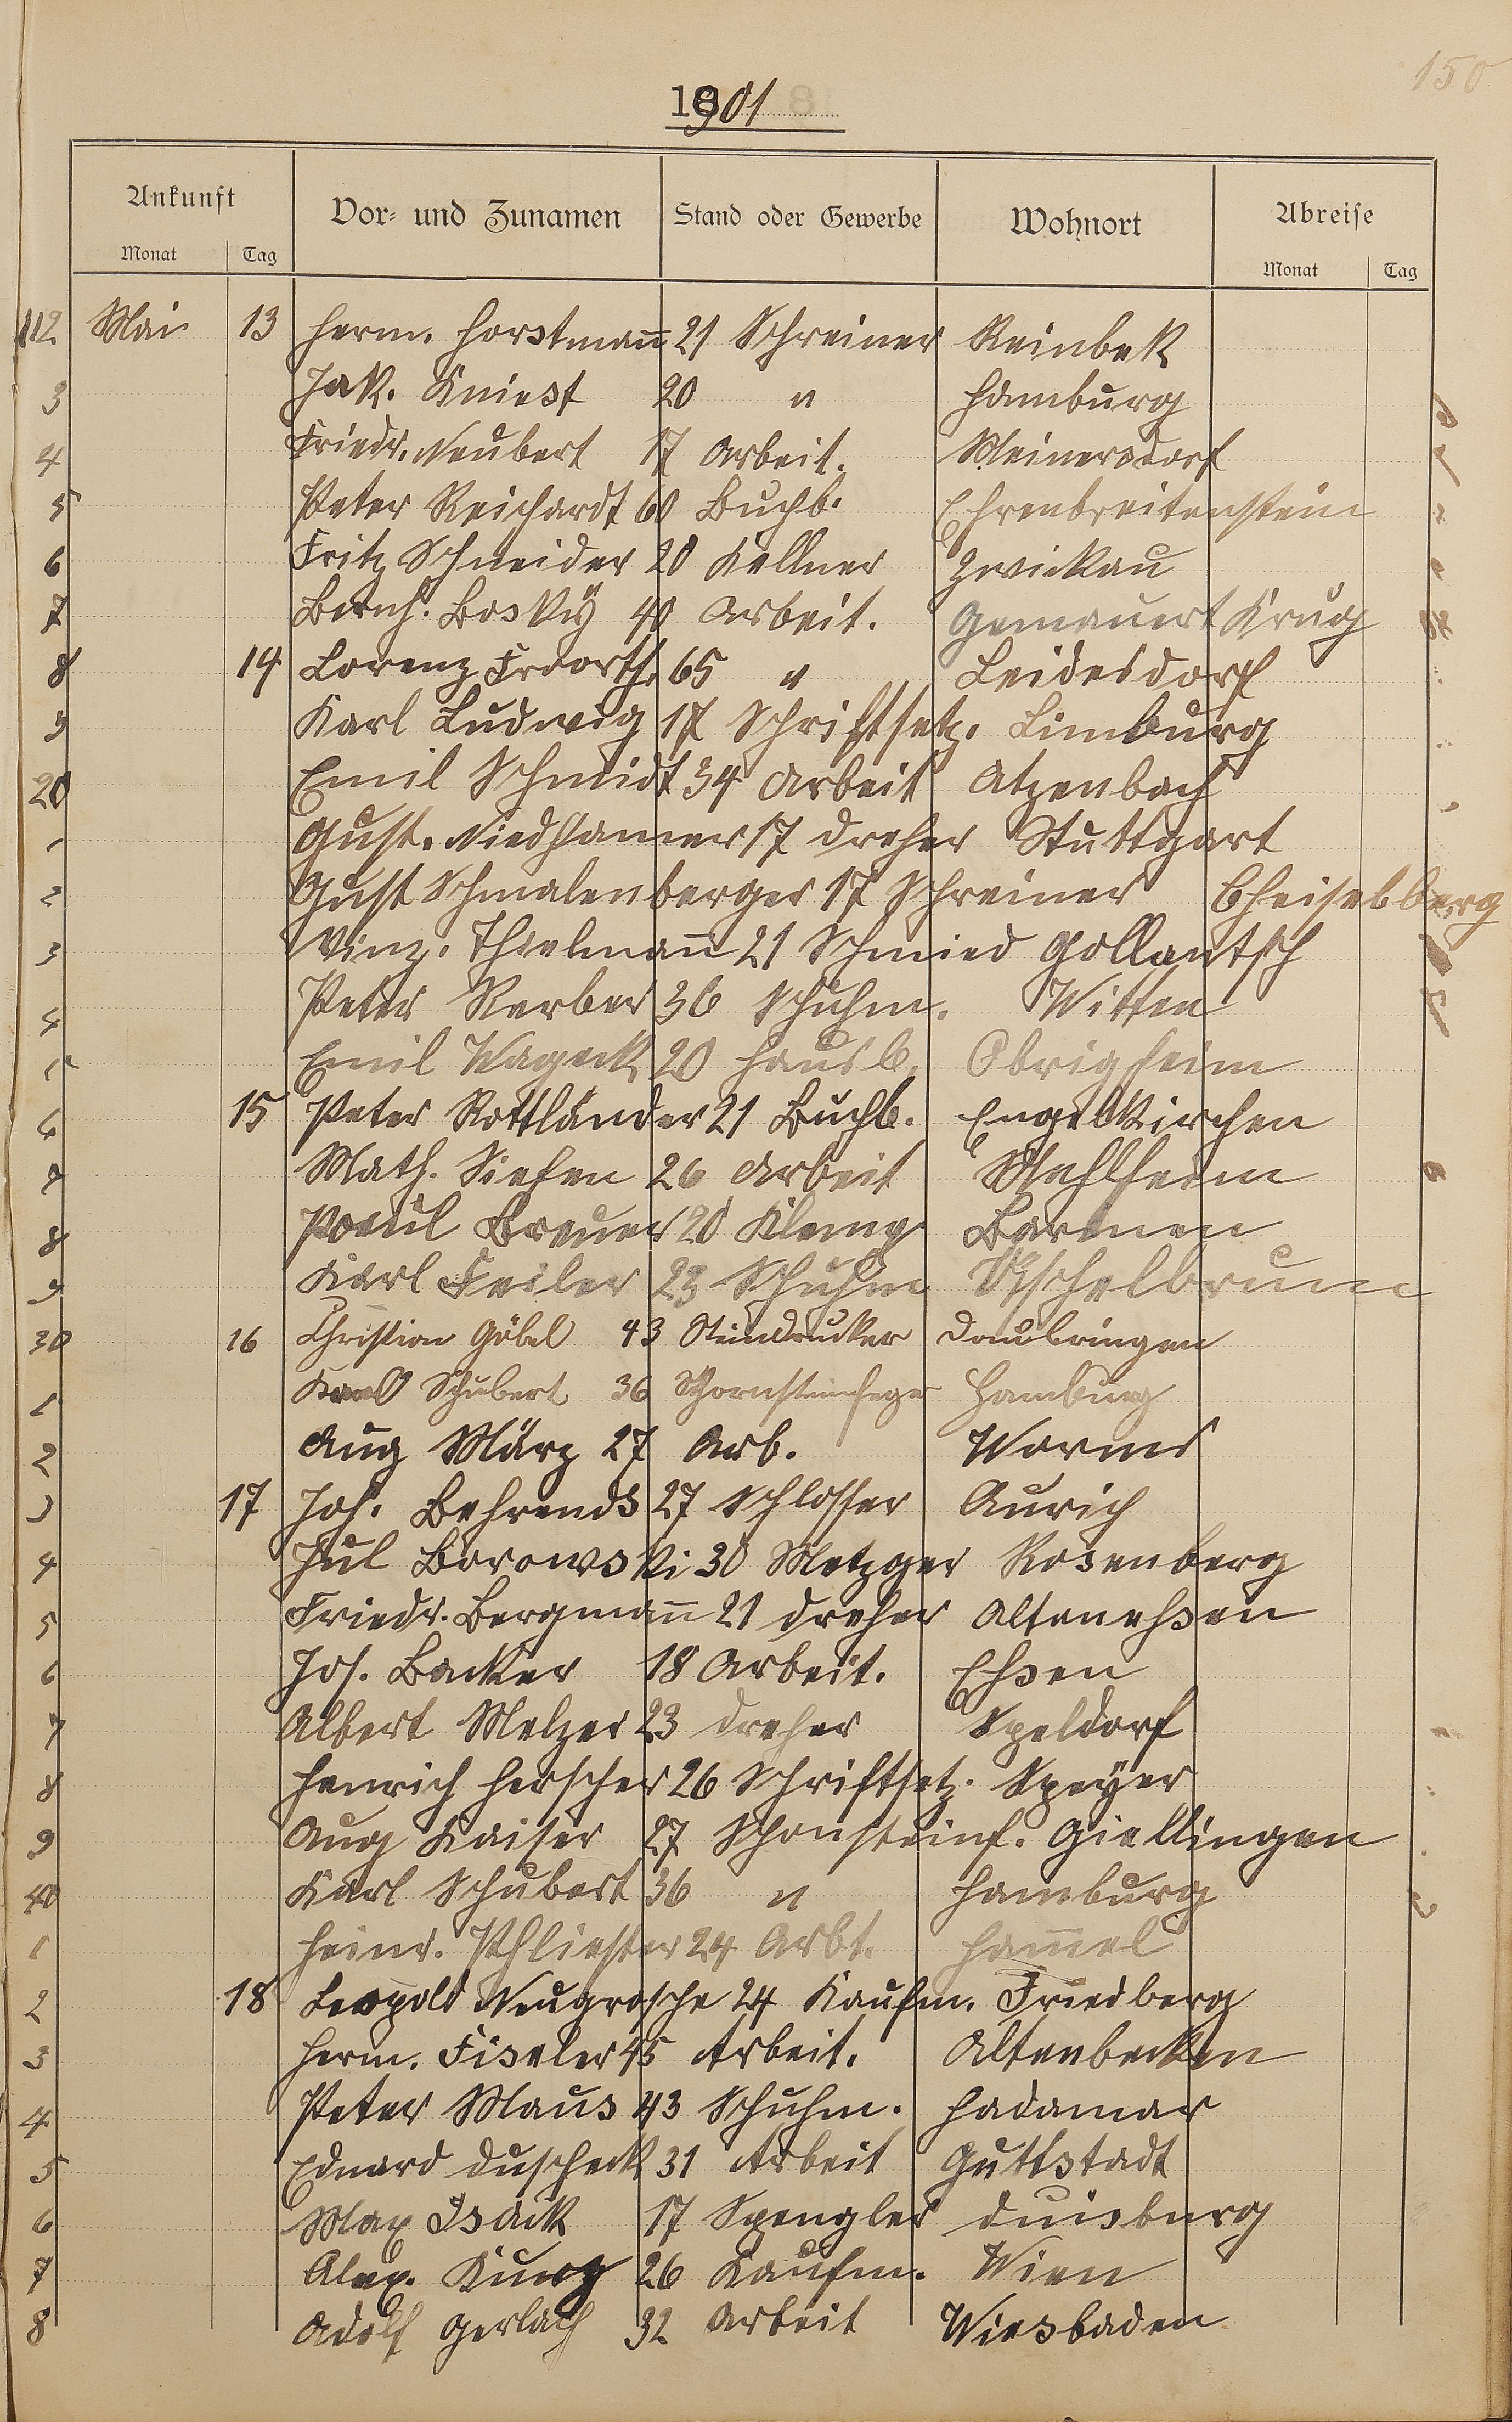 150
1901
Ankunft Vor- und Zunamen Stand oder Gewerbe Wohnort Abreise
Monat Tag Monat Tag
112 Mai 13 Herm. Horstmann 21 Schreiner Reinbek
3 Jak. Kniest 20 " Hamburg
4 Friedr. Neubert 17 Arbeit. Meinersdorf
5 Peter Reichardt 60 Buchb. Ehrenbreitenstein
6 Fritz Schneider 20 Kellner Zwickau
7 Bernh. Bosky 40 Arbeit. Gemauert Krug
8 14 Lorenz 65 " Leidesdorf
9 Karl Ludwig 17 Schriftsetz. Limburg
20 Emil Schmidt 34 Arbeit Atzenbach
1 Gust. Niedhamer 17 Dreher Stuttgart
2 Gust Schmalenberger 17 Schreiner
3 Vinz. Thielmann 21 Schmied Gollantsch
4 Peter Rerber 36 Schuhm. Witten
5 Emil Wageck 20 Hausb. Obrigheim
6 15 Peter Rottländer 21 Buchb. Engelskirchen
7 Math. Siefen 26 Arbeit Mehlheim
8 Paul Breuer 20 Klemp Barmen
9 Karl Feiler 23 Schuhm Öschelbrunn
30 16 Christian Göbel 43 Steindrucker Daubringen
1 Karl Schubert 36 Schornsteinfeger Hamburg
2 Aug März 27 Arb. Worms
3 17 Joh. Behrends 27 Schlosser Aurich
4 Jul Borowski 30 Metzger Rosenberg
5 Friedr. Bergmann 21 Dreher Altenessen
6 Jos. Backer 18 Arbeit. Essen
7 Albert Melzer 23 Dreher Speldorf
8 Henrich Herscher 26 Schriftsetz. Speyer
9 Aug Kaiser 27 Schonsteinf. Giellingen
40 Karl Schubert 36 " Hamburg
1 Heinr. Pfliester 24 Arbt. Hammel
2 18 Leopold Neugrosche 24 Kaufm. Friedberg
3 Herm. Fiseler 45 Arbeit. Altenbecken
4 Peter Maus 43 Schuhm. Hadamar
5 Eduard Duscheck 31 Arbeit Guttstadt
6 Max Isaik 17 Spengler Duisburg
7 Alex. Kurz 26 Kaufm. Wien
8 Adolf Gerlach 32 Arbeit Wiesbaden